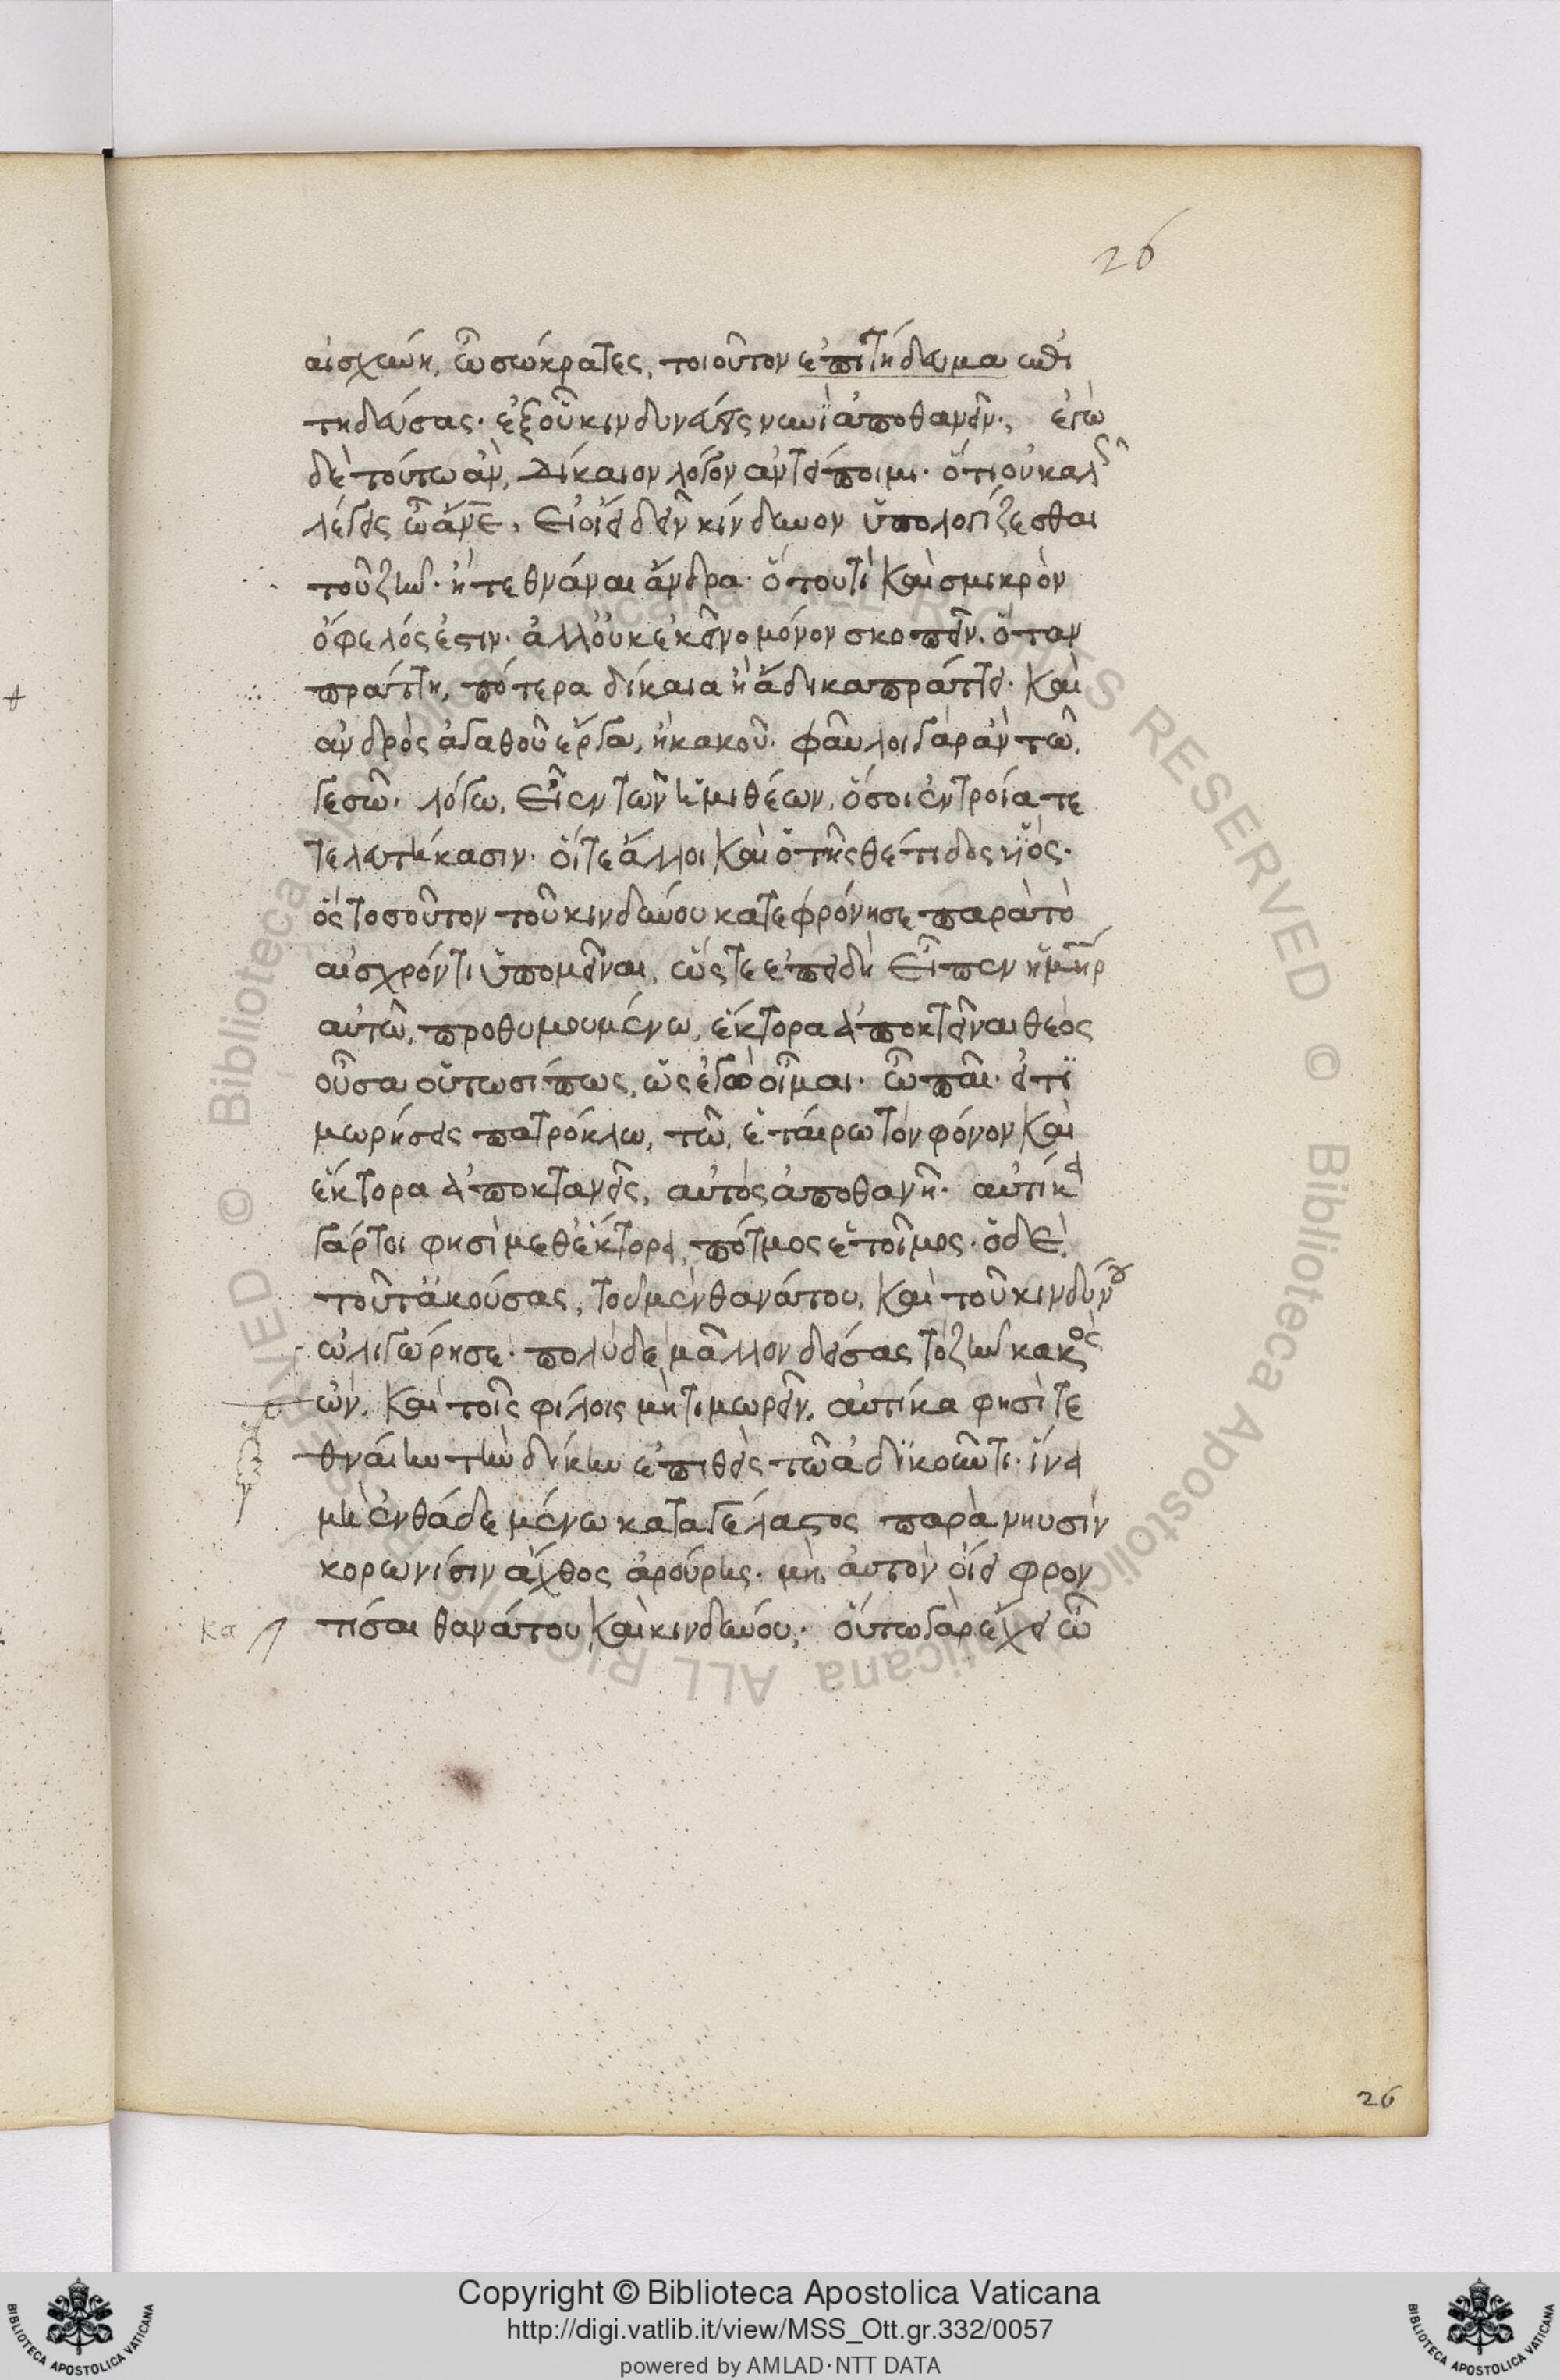 26
αἰσχύνῃ, ὦ σώκρατες, τοιοῦτον ἐπιτήδευμα ἐπι
τηδεύσας· ἐξ οὗ κινδυνεύεις νυνῒ ἀποθανεῖν; ἐγὼ
δὲ τούτω ἂν, δίκαιον λόγον ἀντείποιμι· ὅτι οὐ καλῶς
λέγεις ὦ ἄνε, εἰ οἴει δεῖν κίνδυνον ὑπολογίζεσθαι
τοῦ ζῆν· ἢ τεθνάναι ἄνδρα· ὅτου τὶ καὶ σμικρὸν
ὄφελός ἐστιν· ἀλλ' οὐκ ἐκεῖνο μόνον σκοπεῖν. ὅταν
πράττη, πότερα δίκαια ἢ ἄδικα πράττει· καὶ
ἀνδρὸς ἀγαθοῦ ἔργα, ἢ κακοῦ· φαῦλοι γὰρ ἂν τῶ,
γε σῶ· λόγω, εἶεν τῶν ἡμιθέων, ὅσοι ἐν τροία τε
τελευτήκασιν· οἵ τε ἄλλοι καὶ ὁ τῆς θέτιδος υἱός·
ὃς τοσοῦτον τοῦ κινδύνου κατεφρόνησε παρὰ τὸ
αἰσχρόν τι ὑπομεῖναι, ὥστε ἐπειδὴ εἶπεν ἡ μηρ
αὐτῶ, προθυμουμένω, ἕκτορα ἀποκτεῖναι θεὸς
οὖσα οὕτωσί πως, ὡς ἐγὼ οἶμαι· ὦ παῖ· εἰ τι
μωρήσεις πατρόκλω, τῶ, ἑταίρω τὸν φόνον καὶ
ἕκτορα ἀποκτανεῖς, αὐτὸς ἀποθανῆ· αὐτίκα
γάρ τοι φησὶ μεθ' ἕκτορα, πότμος ἑτοῖμος· ὁ δὲ,
τοῦτ' ἀκούσας, τοῦ μὲν θανάτου, καὶ τοῦ κινδύνου
ὠλιγώρησε· πολὺ δὲ μᾶλλον δείσας τὸ ζῆν κακὸς
ὢν, καὶ τοῖς φίλοις μὴ τιμωρεῖν, αὐτίκα φησὶ τε
θναίην τὴν δίκην ἐπιθεὶς τῶ ἀδικοῦντι· ἵνα
μὴ ἐνθάδε μένω καταγέλαστος παρὰ νηυσὶν
κορωνίσιν ἄχθος ἀρούρης· μὴ, αὐτὸν οἴει φρον
τίσαι θανάτου καὶ κινδύνου; οὕτω γὰρ ἔχει ὦ
κα
26
Copyright © Biblioteca Apostolica Vaticana
http://digi.vatlib.it/view/MSS_Ott.gr.332/0057
powered by AMLAD·NTT DATA
© Biblioteca Apostolica Vaticana ALL RIGHTS RESERVED
© Biblioteca Apostolica Vaticana ALL RIGHTS RESERVED
BIBLIOTECA APOSTOLICA VATICANA
BIBLIOTECA APOSTOLICA VATICANA